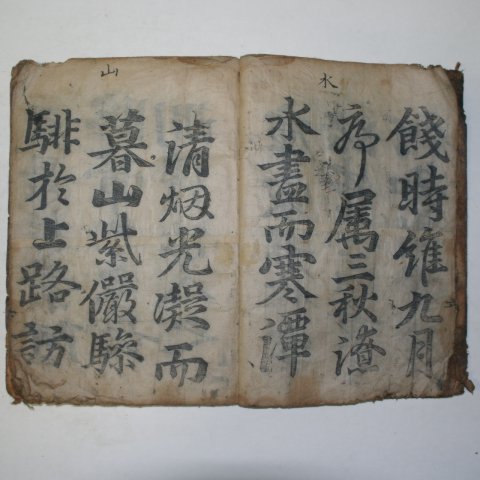 水
餞時維九月
序属三秋潦
水盡而寒潭
山
清烟光凝而
暮山紫儼驂
騑於上路訪